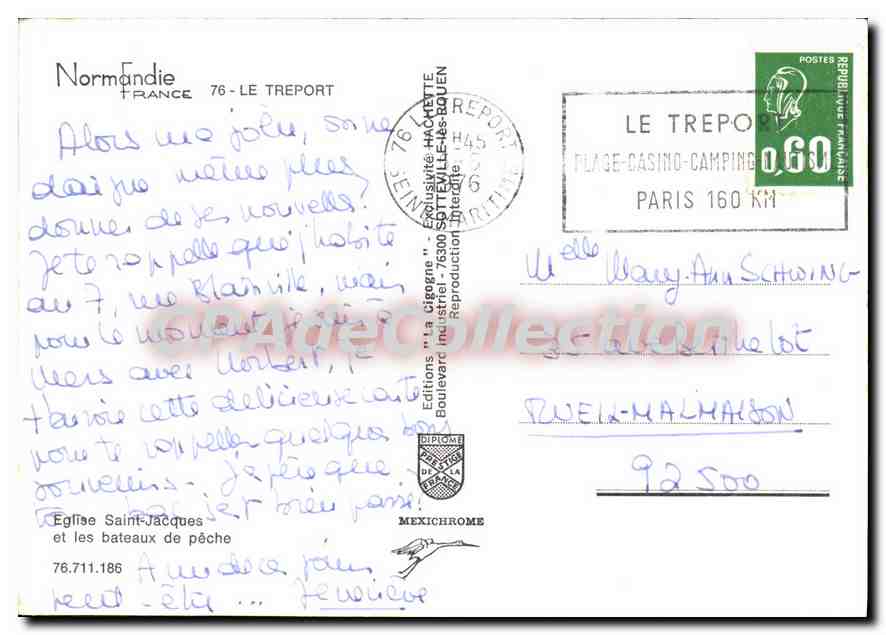 Normandie
FRANCE
76 - LE TREPORT
Alors ma jolie, on ne
daigne même plus
donner de ses nouvelles!
Je te rappelle que j'habite
au 7, rue Blainville, mais
pour le moment je suis à
Mers avec Norbert, je
t'envoie cette délicieuse carte
pour te rappeler quelques bons
souvenirs. J'espère que
ton bac s'est bien passé!
Eglise Saint-Jacques
et les bateaux de pêche
76.711.186
A un de ces jours
peut-être ...
Editions "La Cigogne" - Exclusivité HACHETTE
Boulevard industriel - 76300 SOTTEVILLE-lès-ROUEN
Reproduction Interdite
DIPLOME
PRESTIGE
DE LA
FRANCE
MEXICHROME
76 LE TREPORT
SEINE MARITIME
LE TREPORT
PLAGE-CASINO-CAMPING
PARIS 160 KM
POSTES
REPUBLIQUE FRANÇAISE
0,60
Melle Mary-Ann SCHWING
35 av Berthelot
RUEIL-MALMAISON
92500
CPAdeCollection